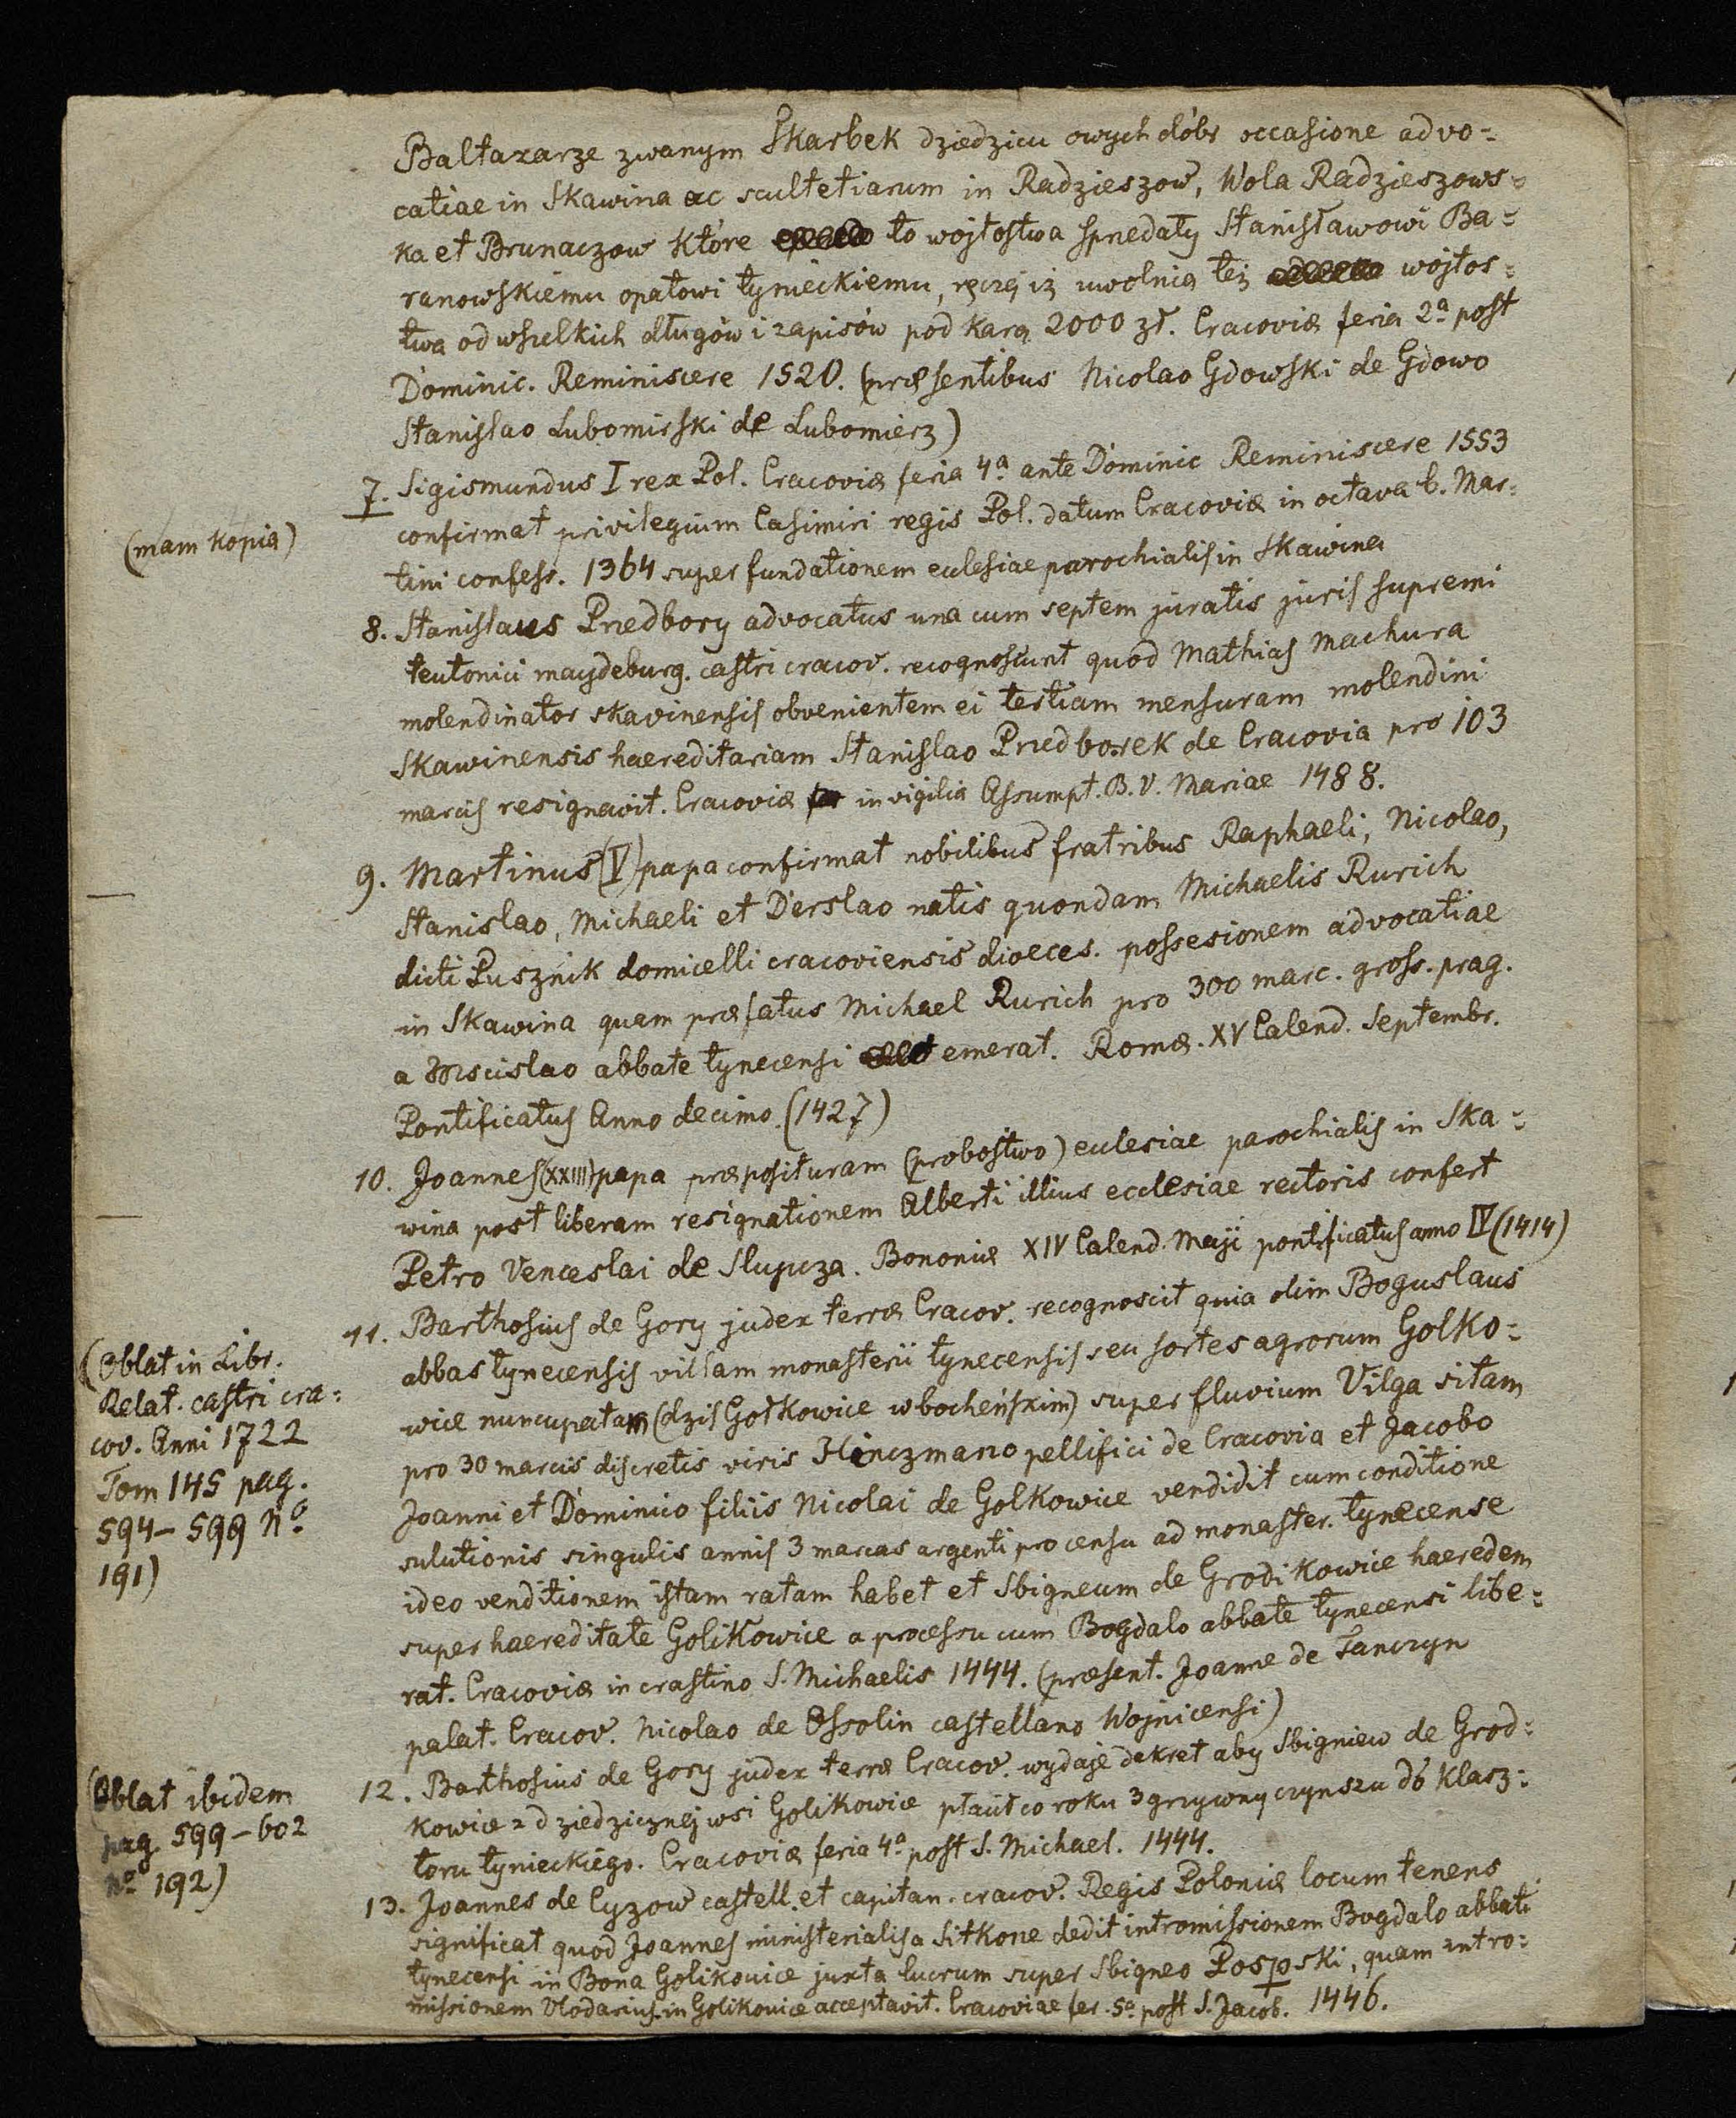 Baltazarze zwanym Skarbek dziedzicu owych dóbr occasione advo=
catiae in Skawina ac scultetiarum in Radzieszow, Wola Radzieszows=
ka et Brunaczow które to wojtostwa sprzedały Stanisławowi Ba=
ranowskiemu opatowi tynieckiemu, ręczą iż uwolnią też wojtos=
twa od wszelkich długów i zapisów pod karą 2000 zł. Cracoviæ feria 2ª post
Dominic. Reminiscere 1520. (præsentibus Nicolao Gdowski de Gdowo
Stanislao Lubomirski de Lubomierz)
7. Sigismundus I rex Pol. Cracoviæ feria 4ª ante Dominic Reminiscere 1553
(mam kopią)
confirmat privilegium Casimiri regis Pol. datum Cracoviæ in octava b. Mar=
tini confess. 1364 super fundationem eclesiae parochialis in Skawina
8. Stanislaus Przedbory advocatus una cum septem juratis juris supremi
teutonici maydeburg. castri cracov. recognoscunt quod Mathias Machura
molendinator skavinensis obvenientem ei tertiam mensuram molendini
Skawinensis haereditariam Stanislao Przedborek de Cracovia pro 103
marcis resignavit. Cracoviæ in vigilia Assumpt. B. V. Mariae 1488.
9. Martinus (V) papa confirmat nobilibus fratribus Raphaeli, Nicolao,
Stanislao, Michaeli et Derslao natis quondam Michaelis Rurich
dicti Pusznik domicelli cracoviensis dioeces. possesionem advocatiae
in Skawina quam præfatus Michael Rurich pro 300 marc. gross. prag.
a Mscislao abbate tynecensi emerat. Romæ. XV Calend. Septembr.
Pontificatus Anno decimo. (1427)
10. Joannes (XXIII) papa præposituram (probostwo) eclesiae parochialis in Ska=
wina post liberam resignationem Alberti illius ecclesiae rectoris confert
Petro Venceslai de Slupcza. Bononiæ XIV Calend. Maji pontificatus anno IV (1414)
11. Barthosius de Gory judex terræ Cracov. recognoscit quia olim Boguslaus
(Oblat in Libr.
Relat. castri cra=
cov. Anni 1722
Tom 145 pag.
594–599 Nº
191)
abbas tynecensis villam monasterii tynecensis seu sortes agrorum Golko=
wice nuncupatam (dziś Gołkowice w bocheńskim) super fluvium Vilga sitam
pro 30 marcis discretis viris Hinczmano pellifici de Cracovia et Jacobo
Joanni et Dominico filiis Nicolai de Golkowice vendidit cum conditione
solutionis singulis annis 3 marcas argenti pro censu ad monaster. tynecense
ideo venditionem istam ratam habet et Sbigneum de Grodikowice haeredem
super haereditate Golikowice a processu cum Bogdalo abbate tynecensi libe=
rat. Cracoviæ in crastino S. Michaelis 1444. (præsent. Joanne de Tanczyn
palat. Cracov. Nicolao de Ossolin castellano Wojnicensi)
12. Barthosius de Gory judex terræ Cracov. wydaje dekret aby Sbigniew de Grod=
(Oblat ibidem
pag 599–602
Nº 192)
kowice z dziedzicznej wsi Golikowice płacił co roku 3 grzywny czynszu do klasz=
toru tynieckiego. Cracoviæ feria 4ª post S. Michael. 1444.
13. Joannes de Cyzow castell. et capitan. cracov. Regis Poloniæ locum tenens
significat quod Joannes ministerialis a Sitkone dedit intromissionem Bogdalo abbati
tynecensi in Bona Golikovice juxta lucrum super Sbigneo Pospski, quam intro=
missionem Vlodarius in Golikovice acceptavit. Cracoviae fer. 5ª post S. Jacob. 1446.